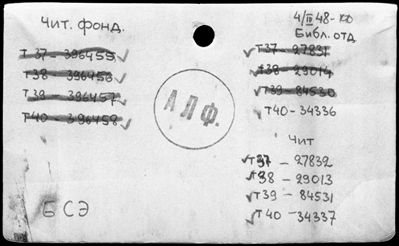 Чит. фонд.
Т 37 - 396455
Т 38 - 396456
Т 39 - 396457
Т 40 - 396458
АЛФ.
БСЭ
4/IV 48-100
Библ. отд
Т 37 - 27831
Т 38 - 29014
Т 39 - 84530
Т 40 - 34336
Чит
Т 37 - 27832
Т 38 - 29013
Т 39 - 84531
Т 40 - 34337